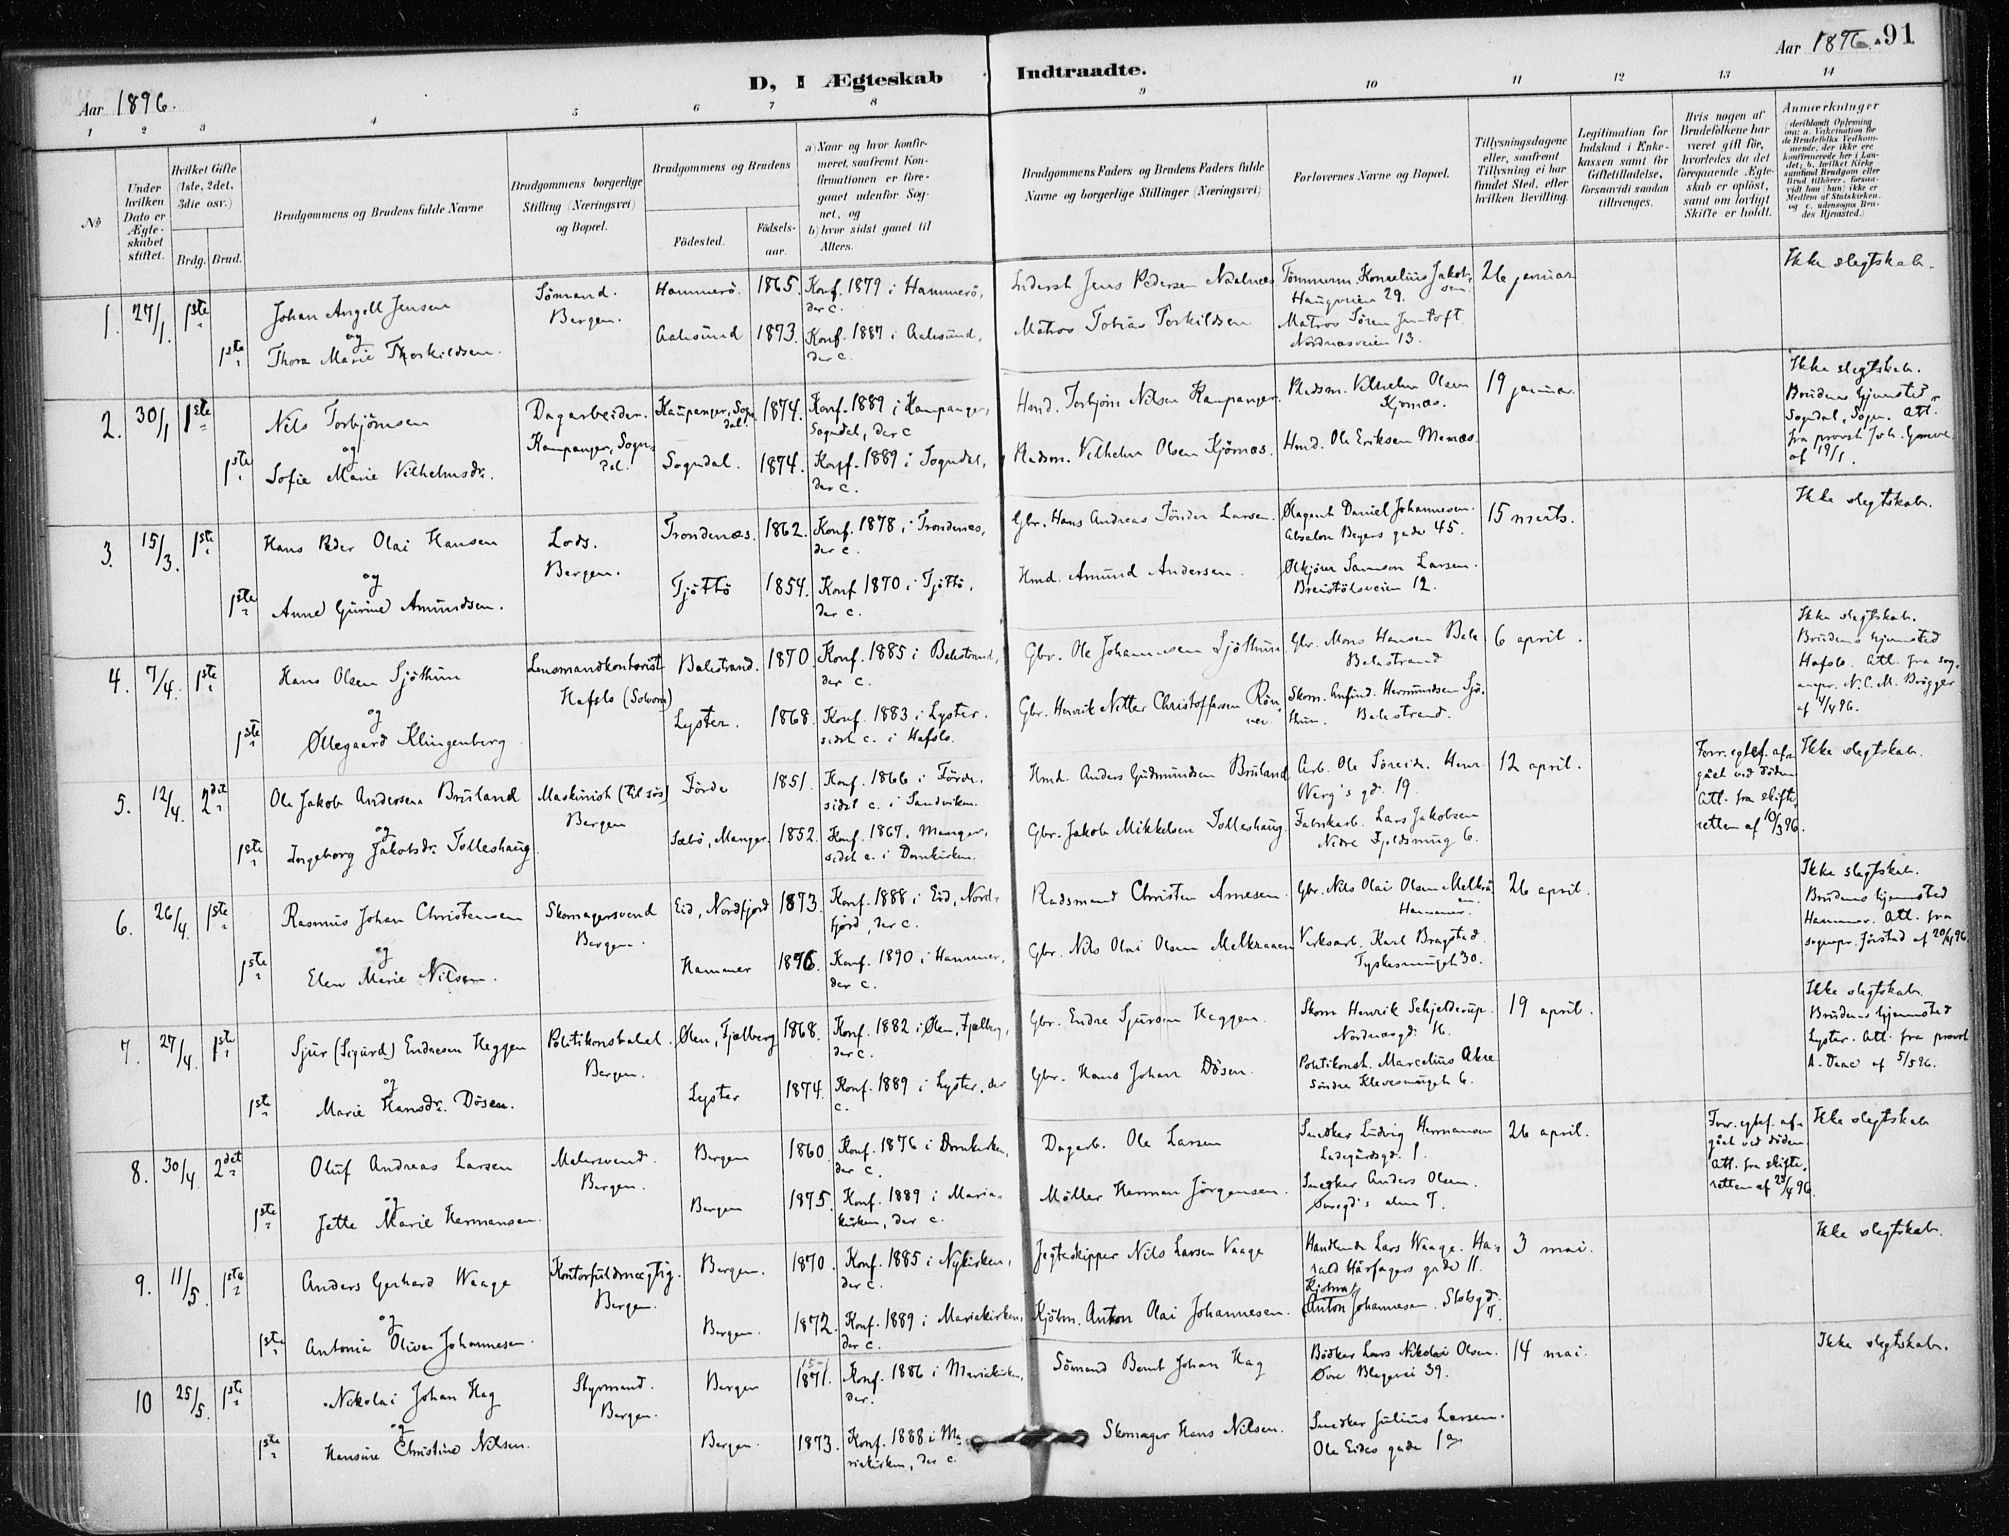 Aar 1896.
D, I Ægteskab Indtraadte.
Aar 1896. 91
1 2 3 4 5 6 7 8 9 10 11 12 13 14
No
Under hvilken Dato er Ægteskabet stiftet.
Hvilket Gifte (1ste, 2det, 3die osv.)
Brdg. Brud.
Brudgommens og Brudens fulde Navne
Brudgommens borgerlige Stilling (Næringsvei) og Bopæl.
Brudgommens og Brudens
Fødested.
Fødselsaar.
a) Naar og hvor konfirmeret, saafremt Konfirmationen er foregaaet udenfor Sognet, og
b) hvor sidst gaaet til Alters.
Brudgommens Faders og Brudens Faders fulde Navne og borgerlige Stillinger (Næringsvei)
Forlovernes Navne og Bopæl.
Tillysningsdagene eller, saafremt Tillysning ei har fundet Sted, efter hvilken Bevilling.
Legitimation for Indskud i Enkekassen samt for Giftetilladelse, forsaavidt saadan tiltrænges.
Hvis nogen af Brudefolkene har været gift før, hvorledes da det foregaaende Ægteskab er opløst, samt om lovligt Skifte er holdt.
Anmærkninger (deriblandt Oplysning om: a. Vakcination for de Brudefolks Vedkommende, der ikke ere konfirmerede her i Landet; b. hvilket Kirkesamfund Brudgom eller Brud tilhører, forsaavidt han (hun) ikke er Medlem af Statskirken, og c. udensogns Brudes Hjemsted.)
1. 27/1. 1ste Johan Angell Jensen Sømand. Bergen. Hammerö. 1865. Konf. 1879 i Hammerö, der c. Jens Pedersen Tømmerm. Kornelius Jakobsen. Haugveien 29. 26 januar Ikke slegtskab.
og
1ste Thora Marie Thorkildsen. Aalesund 1873. Konf. 1887 i Aalesund, der c. Matros Tobias Torkildsen Matros Sören Nordnæsveien 13.
2. 30/1 1ste Nils Torbjörnsen Dagarbeider. Kaupanger, Sogndal. Kaupanger, Sogndal. 1874. Konf. 1889 i Kaupanger, Sogndal, der c Hmd. Torbjörn Nilsen Kaupanger. Pladsm. Vilhelm Olsen Kjörnæs. 19 januar. Ikke slegtskab. Brudens hjemsted Sogndal, Sogn. Att. fra provst Joh. af 19/1.
og
1ste Sofie Marie Vilhelmsdr. Sogndal. 1874. Konf. 1889 i Sogndal, der c. Pladsm. Vilhelm Olsen Kjörnæs. Hmd. Ole Eriksen
3. 15/3. 1ste Hans Peder Olai Hansen Lods. Bergen. Trondenæs. 1862. Konf. 1878 i Trondenæs, der c. Gbr. Hans Andreas Tönder Larsen. Daniel Johannesen. Absalon Beyers gade 45. 15 marts. Ikke slegtskab.
og
1ste Anne Gurine Amundsen. Tjöttö 1854. Konf 1870 i Tjöttö, der c. Hmd. Amund Andersen. Samson Larsen. Breistölsveien 12.
4. 7/4. 1ste Hans Olsen Sjöthun Lensmandkontorist Hafslo (Solvorn) Balestrand. 1870 Konf. 1885 i Balestrand, der c. Gbr. Ole Johannesen Sjöthun. Gbr. Mons Hansen Bale Balestrand 6 april. Ikke slegtskab. Brudens hjemsted Hafslo. Att. fra sognepr. N. C. M. Brögger af 4/4 96.
og
1ste Øllegaard Klingenberg Lyster. 1868. Konf. 1883 i Lyster. sidst c. i Hafslo. Gbr. Henrik Nitter Christoffersen Skom. Anfind. Hermundsen Sjöthun. Balestrand.
5. 12/4. 2det Ole Jakob Andersen Bruland Maskinist (til søs) Bergen Förde 1851. Konf. 1866 i Förde. sidst c. i Sandviken. Hmd. Anders Gudmundsen Bruland Arb. Ole Henr. Werg's gd. 19. 12 april. Forr. egtef. afgået ved döden Att. fra skifteretten af 10/3 96. Ikke slegtskab.
og
1ste Ingeborg Jakobsdr. Tolleshaug. Sæbö, Manger. 1852. Konf. 1867. Manger, sidst c. i Domkirken. Gbr. Jakob Mikkelsen Tolleshaug. Fabrikarb. Lars Jakobsen Nedre Fjeldsmug 6.
6. 26/4. 1ste Rasmus Johan Christensen Skomagersvend Bergen. Eid, Nordfjord 1873. Konf. 1888 i Eid, Nordfjord, der c. Pladsmand Christen Arnesen. Gbr. Nils Olai Olsen Melkråen Hammer. 26 april. Ikke slegtskab. Brudens hjemsted Hammer. Att. fra sognepr. Jörstad af 20/4 96.
og
1ste Elen Marie Nilsen. Hammer 1876. Konf. 1890 i Hammer, der c. Gbr. Nils Olai Olsen Melkraaen Verksarb. Karl Bragstad. Tyskesmuget 30.
7. 27/4. 1ste Sjur (Sigurd) Endresen Heggen Politikonstabel. Bergen. Ølen, Fjælberg 1868. Konf. 1882 i Ølen, Fjælberg, der c. Gbr. Endre Sjursen Heggen. Skom Henrik Schjelderup. Nordnæsgd. 16. 19 april. Ikke slegtskab. Brudens hjemsted Lyster. Att. fra provst A. Daae af 5/5 96.
og
1ste Marie Hansdr. Dösen. Lyster 1874. Konf. 1889 i Lyster, der c. Gbr. Hans Johan Dösen. Politikonst. Marcelius Söndre Klevesmuget 6.
8. 30/4. 2det Oluf Andreas Larsen Malersvend. Bergen. Bergen 1860. Konf. 1876 i Domkirken, der c. Dagarb. Ole Larsen Snedker Ludvig Hermansen Ladegårdsgd. 1. 26 april. Forr. egtef. afgået ved döden. Att. fra skifteretten af 28/4 96. Ikke slegtskab
og
1ste Jette Marie Hermansen. Bergen 1875. Konf. 1889 i Mariakirken, der c. Möller Herman Jörgensen. Snedker Anders Olsen.
9. 11/5. 1ste Anders Gerhard Waage Kontorfuldmægtig. Bergen. Bergen. 1870. Konf. 1885 i Nykirken, der c. Jegteskipper Nils Larsen Vaage Handlende Lars Waage. Harald Hårfagers gade 11. 3 mai. Ikke slegtskab.
og
1ste Antonia Olivia Johannesen. Bergen. 1872. Konf. 1889 i Mariakirken, der c. Kjöbm. Anton Olai Johannesen. Kjöbm. Anton Johannesen. Slotsgd.
10 25/5. 1ste Nikolai Johan Hag Styrmand. Bergen. Bergen 15-1 1871. Konf. 1886 i Mariakirken, der. Sömand Bernt Johan Hag Bödker Lars Nikolai Olsen. Övre Blegevei 39. 14 mai. Ikke slegtskab.
og
1ste Hansine Christine Nilsen. Bergen. 1873. Konf. 1888 i Mariakirken, der c. Skomager Hans Nilsen. Snedker Julius Larsen. Ole Eides gade